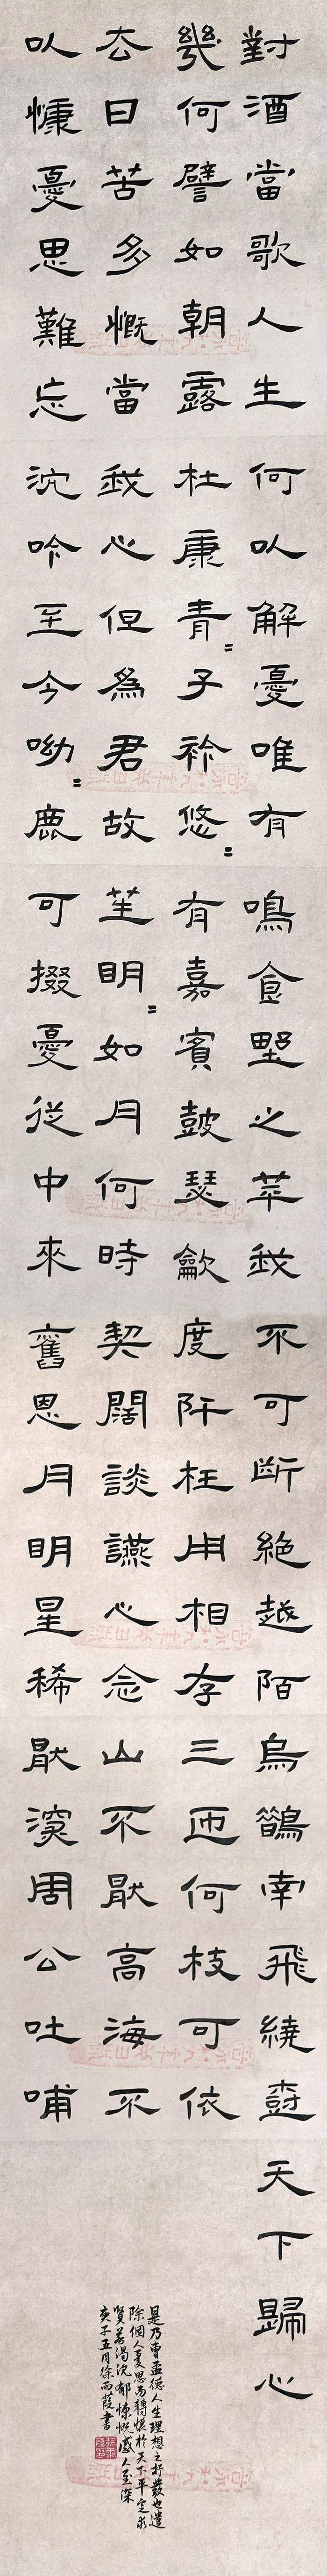 對酒當歌人生
幾何譬如朝露
去日苦多慨當
以慷憂思難忘
何以解憂唯有
杜康青=子衿悠=
我心但為君故
沈吟至今呦=鹿
鳴食野之苹我
有嘉賓鼓瑟龡
笙明=如月何時
可掇憂從中來
不可斷絕越陌
度阡枉用相存
契闊談讌心念
舊恩月明星稀
烏鵲南飛繞樹
三匝何枝可依
山不厭高海不
厭深周公吐哺
天下歸心
是乃曹孟德人生理想之抒發也遣
除個人憂思於天下平定求
賢若渴沈郁慷慨感人至深
庚子五月徐雨書